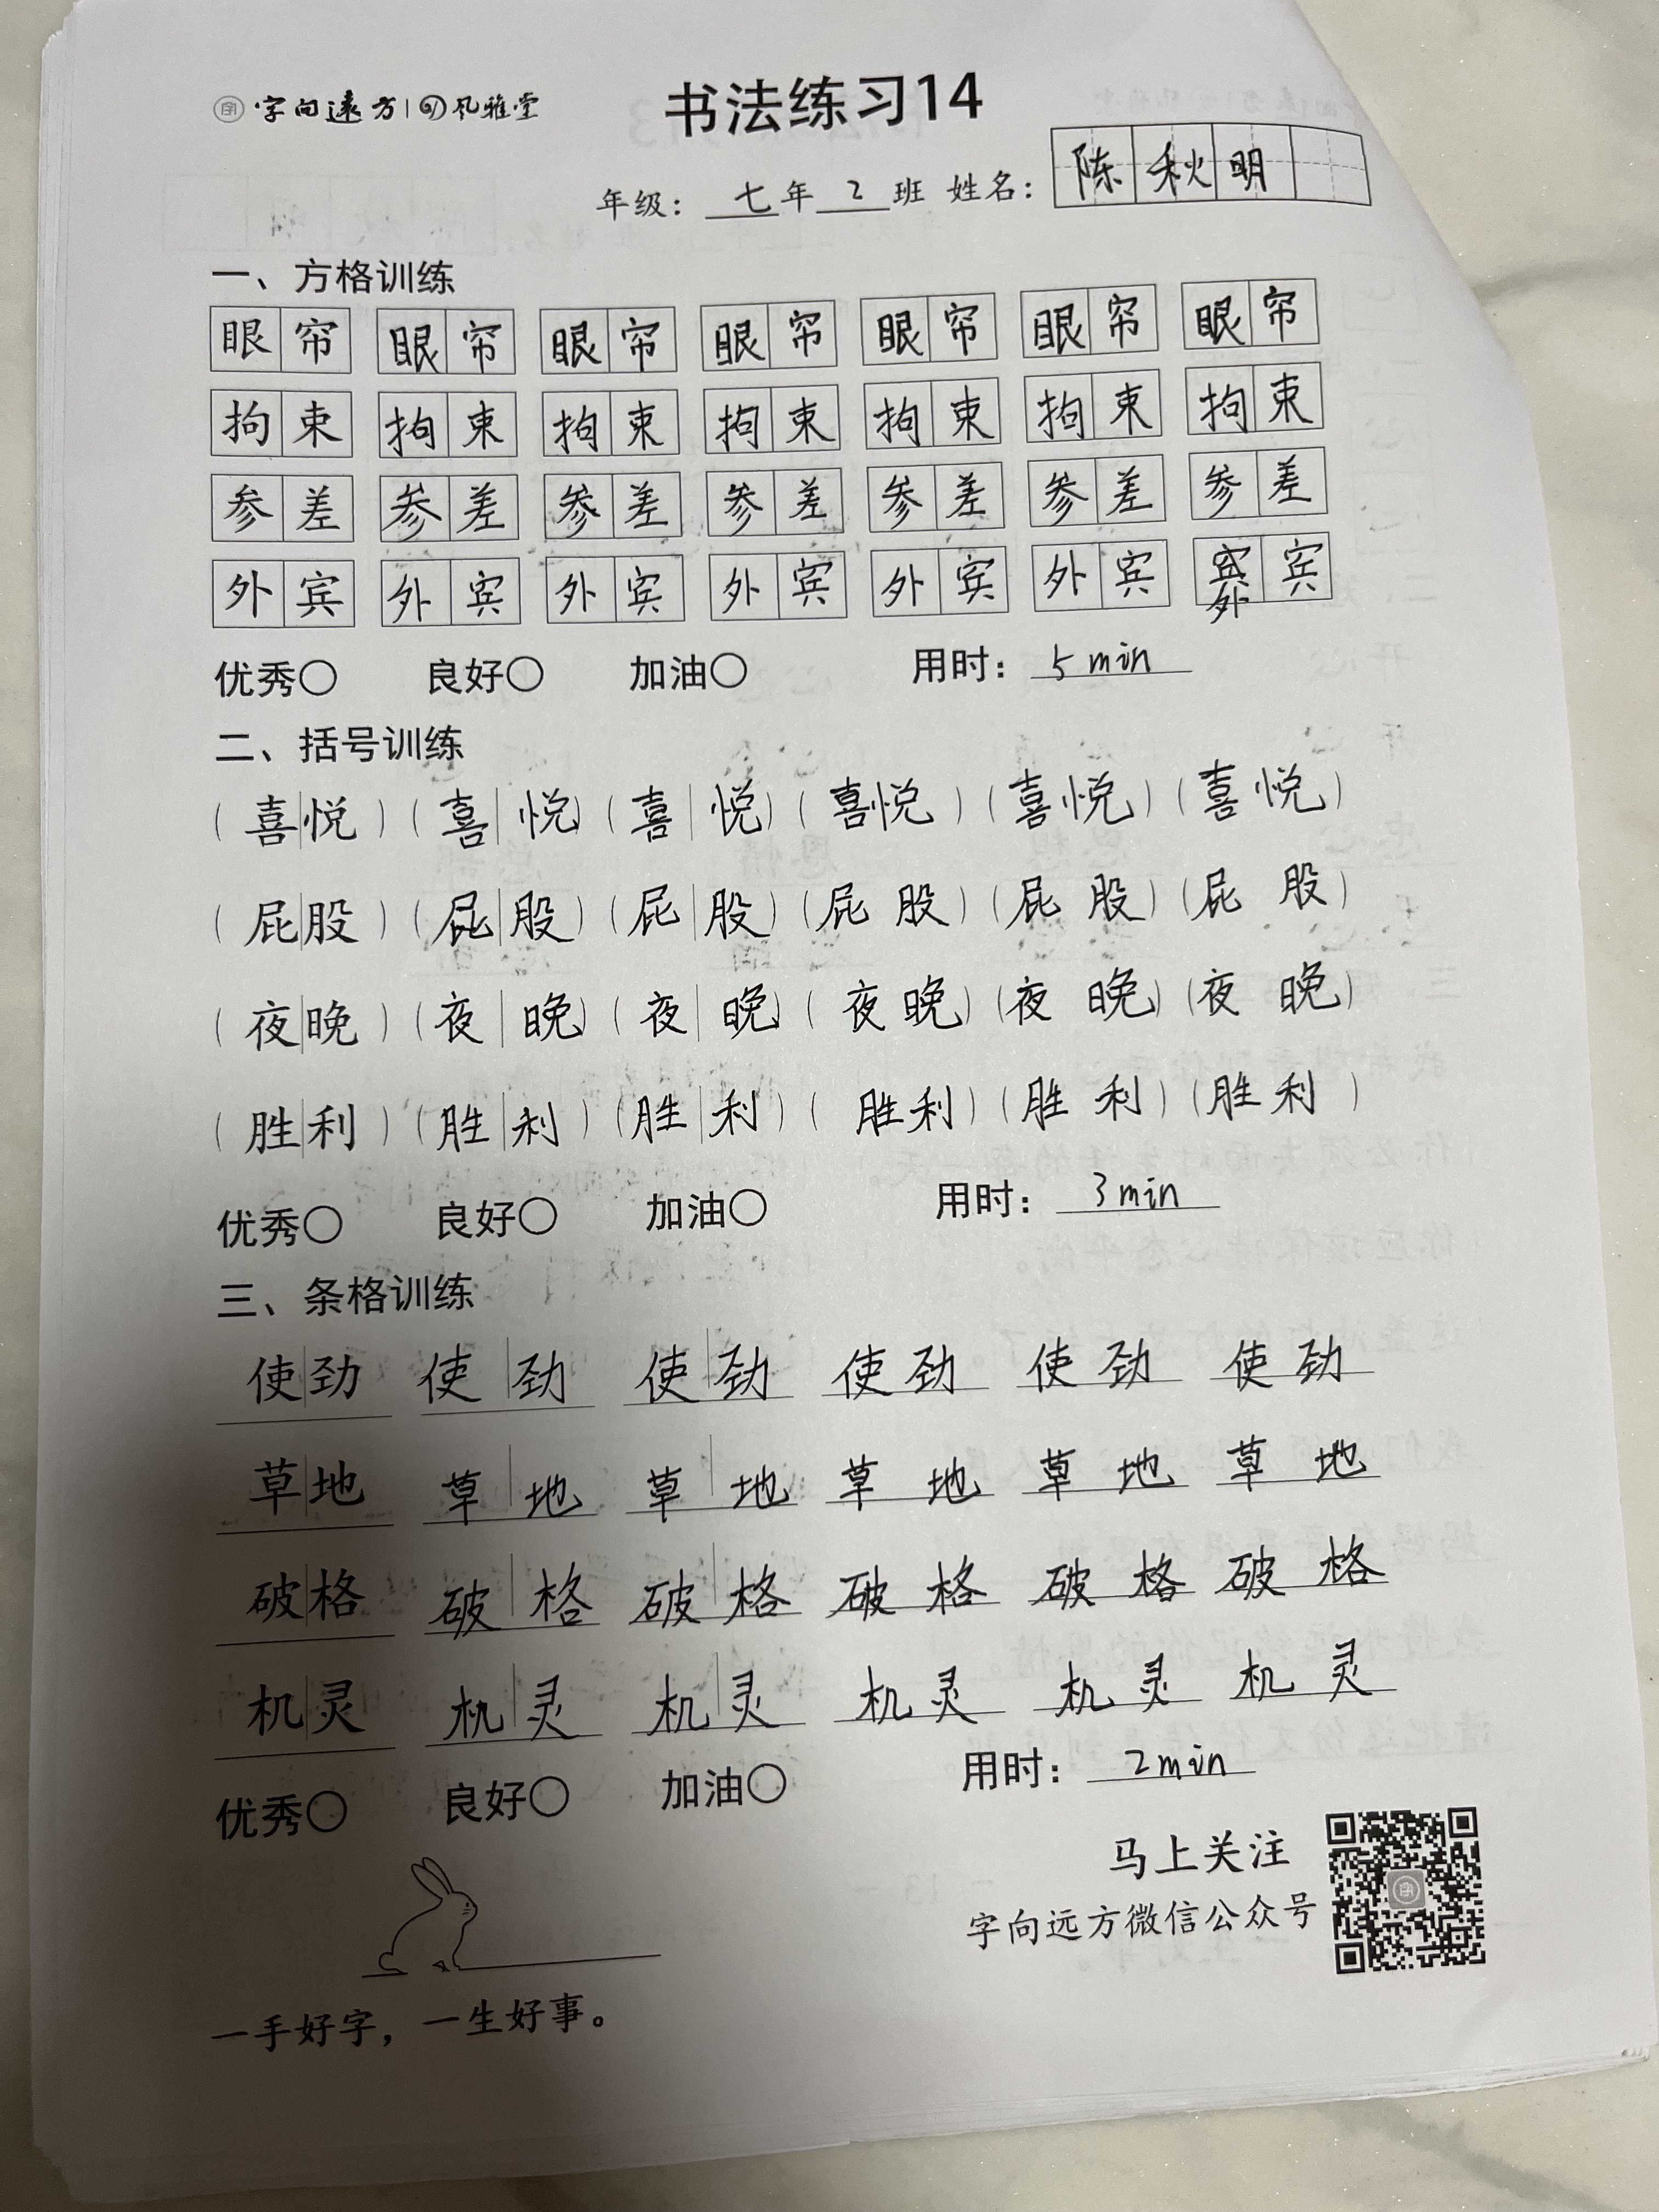 字向远方 | 风雅堂
书法练习14
年级：七年2班 姓名：陈秋明
一、方格训练
眼帘 眼帘 眼帘 眼帘 眼帘 眼帘 眼帘
拘束 拘束 拘束 拘束 拘束 拘束 拘束
参差 参差 参差 参差 参差 参差 参差
外宾 外宾 外宾 外宾 外宾 外宾 宾宾
外
优秀○ 良好○ 加油○ 用时：5min
二、括号训练
（喜悦）（喜悦）（喜悦）（喜悦）（喜悦）（喜悦）
（屁股）（屁股）（屁股）（屁股）（屁股）（屁股）
（夜晚）（夜晚）（夜晚）（夜晚）（夜晚）（夜晚）
（胜利）（胜利）（胜利）（胜利）（胜利）（胜利）
优秀○ 良好○ 加油○ 用时：3min
三、条格训练
使劲 使劲 使劲 使劲 使劲 使劲
草地 草地 草地 草地 草地 草地
破格 破格 破格 破格 破格 破格
机灵 机灵 机灵 机灵 机灵 机灵
优秀○ 良好○ 加油○ 用时：2min
马上关注
字向远方微信公众号
一手好字，一生好事。